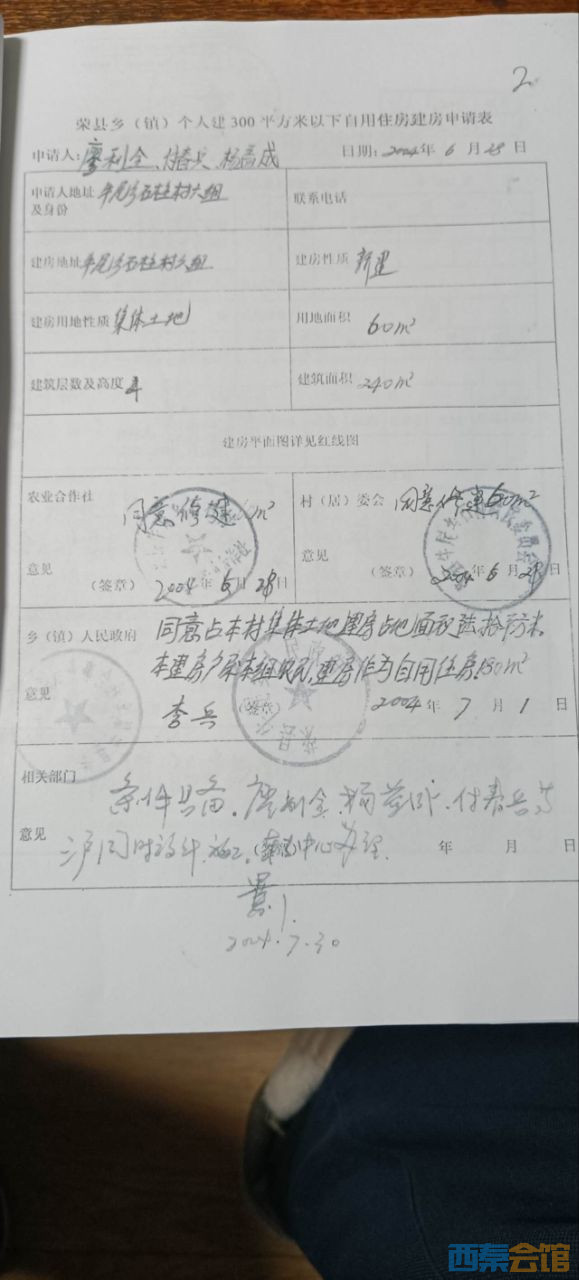 2
荣县乡（镇）个人建300平方米以下自用住房建房申请表
申请人：廖利全、付春兵、杨 成 日期：2004年6月28日
申请人地址 石柱村六组
及身份
联系电话
建房地址 石柱村六组
建房性质 新建
建房用地性质 集体土地
用地面积 60m²
建筑层数及高度 4
建筑面积 240m²
建房平面图详见红线图
农业合作社
同意修建 m²
意见
（签章） 2004年6月28日
村（居）委会 同意修建60m²
意见
（签章） 2004年6月28日
乡（镇）人民政府 同意占本村集体土地建房占地面积陆拾平方米。
本建房户系本组农民，建房作为自用住房 m²
意见 李兵 （签章） 2004年7月1日
相关部门 条件具备。廖利全、杨 、付春兵等
意见 三户同时设计、施工。 中心办理。 年 月 日
2004.7.30
西秦会馆